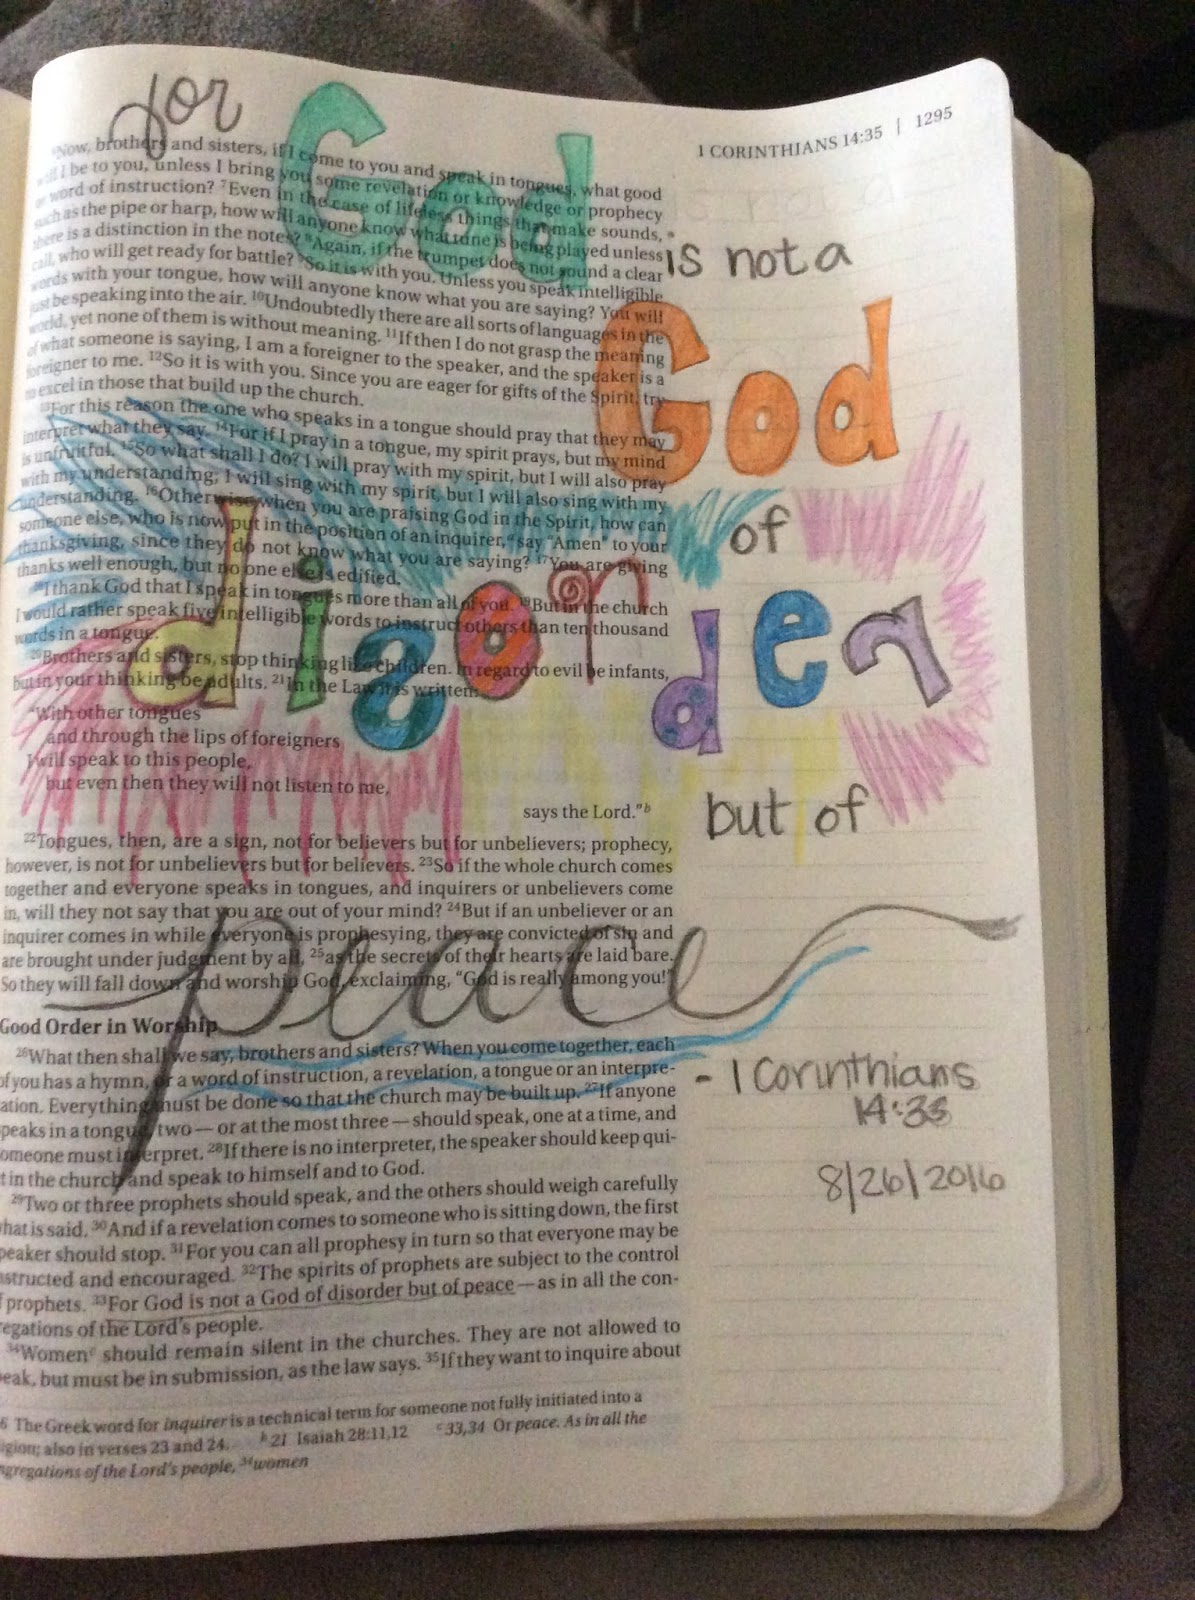 1 CORINTHIANS 14:35 | 1295
for God
is not a
God
of
disorder
but of
peace
- 1 Corinthians
14:33
8/26/2016
⁶Now, brothers and sisters, if I come to you and speak in tongues, what good
will I be to you, unless I bring you some revelation or knowledge or prophecy
or word of instruction? ⁷Even in the case of lifeless things that make sounds,
such as the pipe or harp, how will anyone know what tune is being played unless
there is a distinction in the notes? ⁸Again, if the trumpet does not sound a clear
call, who will get ready for battle? ⁹So it is with you. Unless you speak intelligible
words with your tongue, how will anyone know what you are saying? You will
just be speaking into the air. ¹⁰Undoubtedly there are all sorts of languages in the
world, yet none of them is without meaning. ¹¹If then I do not grasp the meaning
of what someone is saying, I am a foreigner to the speaker, and the speaker is a
foreigner to me. ¹²So it is with you. Since you are eager for gifts of the Spirit, try
to excel in those that build up the church.
¹³For this reason the one who speaks in a tongue should pray that they may
interpret what they say. ¹⁴For if I pray in a tongue, my spirit prays, but my mind
is unfruitful. ¹⁵So what shall I do? I will pray with my spirit, but I will also pray
with my understanding; I will sing with my spirit, but I will also sing with my
understanding. ¹⁶Otherwise when you are praising God in the Spirit, how can
someone else, who is now put in the position of an inquirer,ᵃ say "Amen" to your
thanksgiving, since they do not know what you are saying? ¹⁷You are giving
thanks well enough, but no one else is edified.
¹⁸I thank God that I speak in tongues more than all of you. ¹⁹But in the church
I would rather speak five intelligible words to instruct others than ten thousand
words in a tongue.
²⁰Brothers and sisters, stop thinking like children. In regard to evil be infants,
but in your thinking be adults. ²¹In the Law it is written:
"With other tongues
and through the lips of foreigners
I will speak to this people,
but even then they will not listen to me,
says the Lord."ᵇ
²²Tongues, then, are a sign, not for believers but for unbelievers; prophecy,
however, is not for unbelievers but for believers. ²³So if the whole church comes
together and everyone speaks in tongues, and inquirers or unbelievers come
in, will they not say that you are out of your mind? ²⁴But if an unbeliever or an
inquirer comes in while everyone is prophesying, they are convicted of sin and
are brought under judgment by all, ²⁵as the secrets of their hearts are laid bare.
So they will fall down and worship God, exclaiming, "God is really among you!"
Good Order in Worship
²⁶What then shall we say, brothers and sisters? When you come together, each
of you has a hymn, or a word of instruction, a revelation, a tongue or an interpre-
ation. Everything must be done so that the church may be built up. ²⁷If anyone
peaks in a tongue, two — or at the most three — should speak, one at a time, and
omeone must interpret. ²⁸If there is no interpreter, the speaker should keep qui-
t in the church and speak to himself and to God.
²⁹Two or three prophets should speak, and the others should weigh carefully
hat is said. ³⁰And if a revelation comes to someone who is sitting down, the first
peaker should stop. ³¹For you can all prophesy in turn so that everyone may be
nstructed and encouraged. ³²The spirits of prophets are subject to the control
f prophets. ³³For God is not a God of disorder but of peace — as in all the con-
regations of the Lord's people.
³⁴Womenᶜ should remain silent in the churches. They are not allowed to
eak, but must be in submission, as the law says. ³⁵If they want to inquire about
6 The Greek word for inquirer is a technical term for someone not fully initiated into a
igion; also in verses 23 and 24. ᵇ21 Isaiah 28:11,12 ᶜ33,34 Or peace. As in all the
ngregations of the Lord's people, ³⁴women